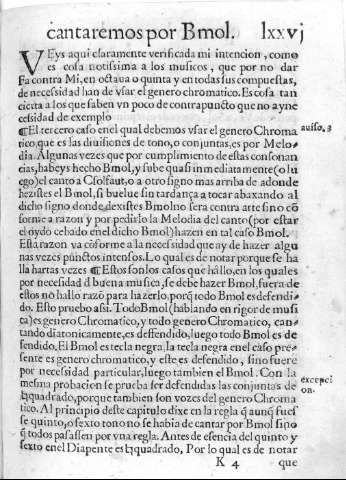 cantaremos por Bmol. lxxvj
VEys aqui claramente verificada mi intencion, como
es cosa notissima a los musicos, que por no dar
Fa contra Mi, en octaua o quinta y en todas sus compuestas,
de necessidad han de vsar el genero chromatico. Es cosa tan
cierta a los que saben vn poco de contrapuncto que no ay ne
cessidad de exemplo
¶El tercero caso enel qual debemos vsar el genero Chroma
tico, que es las diuisiones de tono, o conjuntas, es por Melo-
dia. Algunas vezes que por cumplimiento de estas consonan
cias, habeys hecho Bmol, y sube quasi inmediatamente(o lu
ego)el canto a Csolfaut, o a otro signo mas arriba de adonde
hezistes el Bmol, si buelue sin tardança a tocar abaxando al
dicho signo donde hezistes Bmol no sera contra arte sino cō
forme a razon y por pedirlo la Melodia del canto(por estar
el oydo cebado enel dicho Bmol)hazen en tal caso Bmol.
Esta razon va cōforme a la necessidad que ay de hazer algu
nas vezes punctos intensos. Lo qual es de notar porque se ha
lla hartas vezes ¶Estos son los casos que hallo, en los quales
por necessidad d buena musica, se debe hazer Bmol, fuera de
estos nō hallo razō para hazerlo, porq̄ todo Bmol es defendi-
do. Esto pruebo assi. Todo Bmol(hablando en rigor de musi
ca)es genero Chromatico, y todo genero Chromatico, can-
tando diatonicamente, es defendido, luego todo Bmol es de
fendido, El Bmol es tecla negra, la tecla negra enel caso pre-
sente es genero chromatico, y este es defendido, sino fuere
por necessidad particular, luego tambien el Bmol. Con la
mesma probacion se prueba ser defendidas las conjuntas de
♮quadrado, porque tambien son vozes del genero Chroma
tico. Al principio deste capitulo dixe en la regla q̄ aunq̄ fues
se quinto, o sexto tono no se habia de cantar por Bmol sino
q̄ todos passassen por vna regla. Antes de esencia del quinto y
sexto enel Diapente es ♮quadrado, Por lo qual es de notar
K 4 que
auiso. 3
excepci
on.